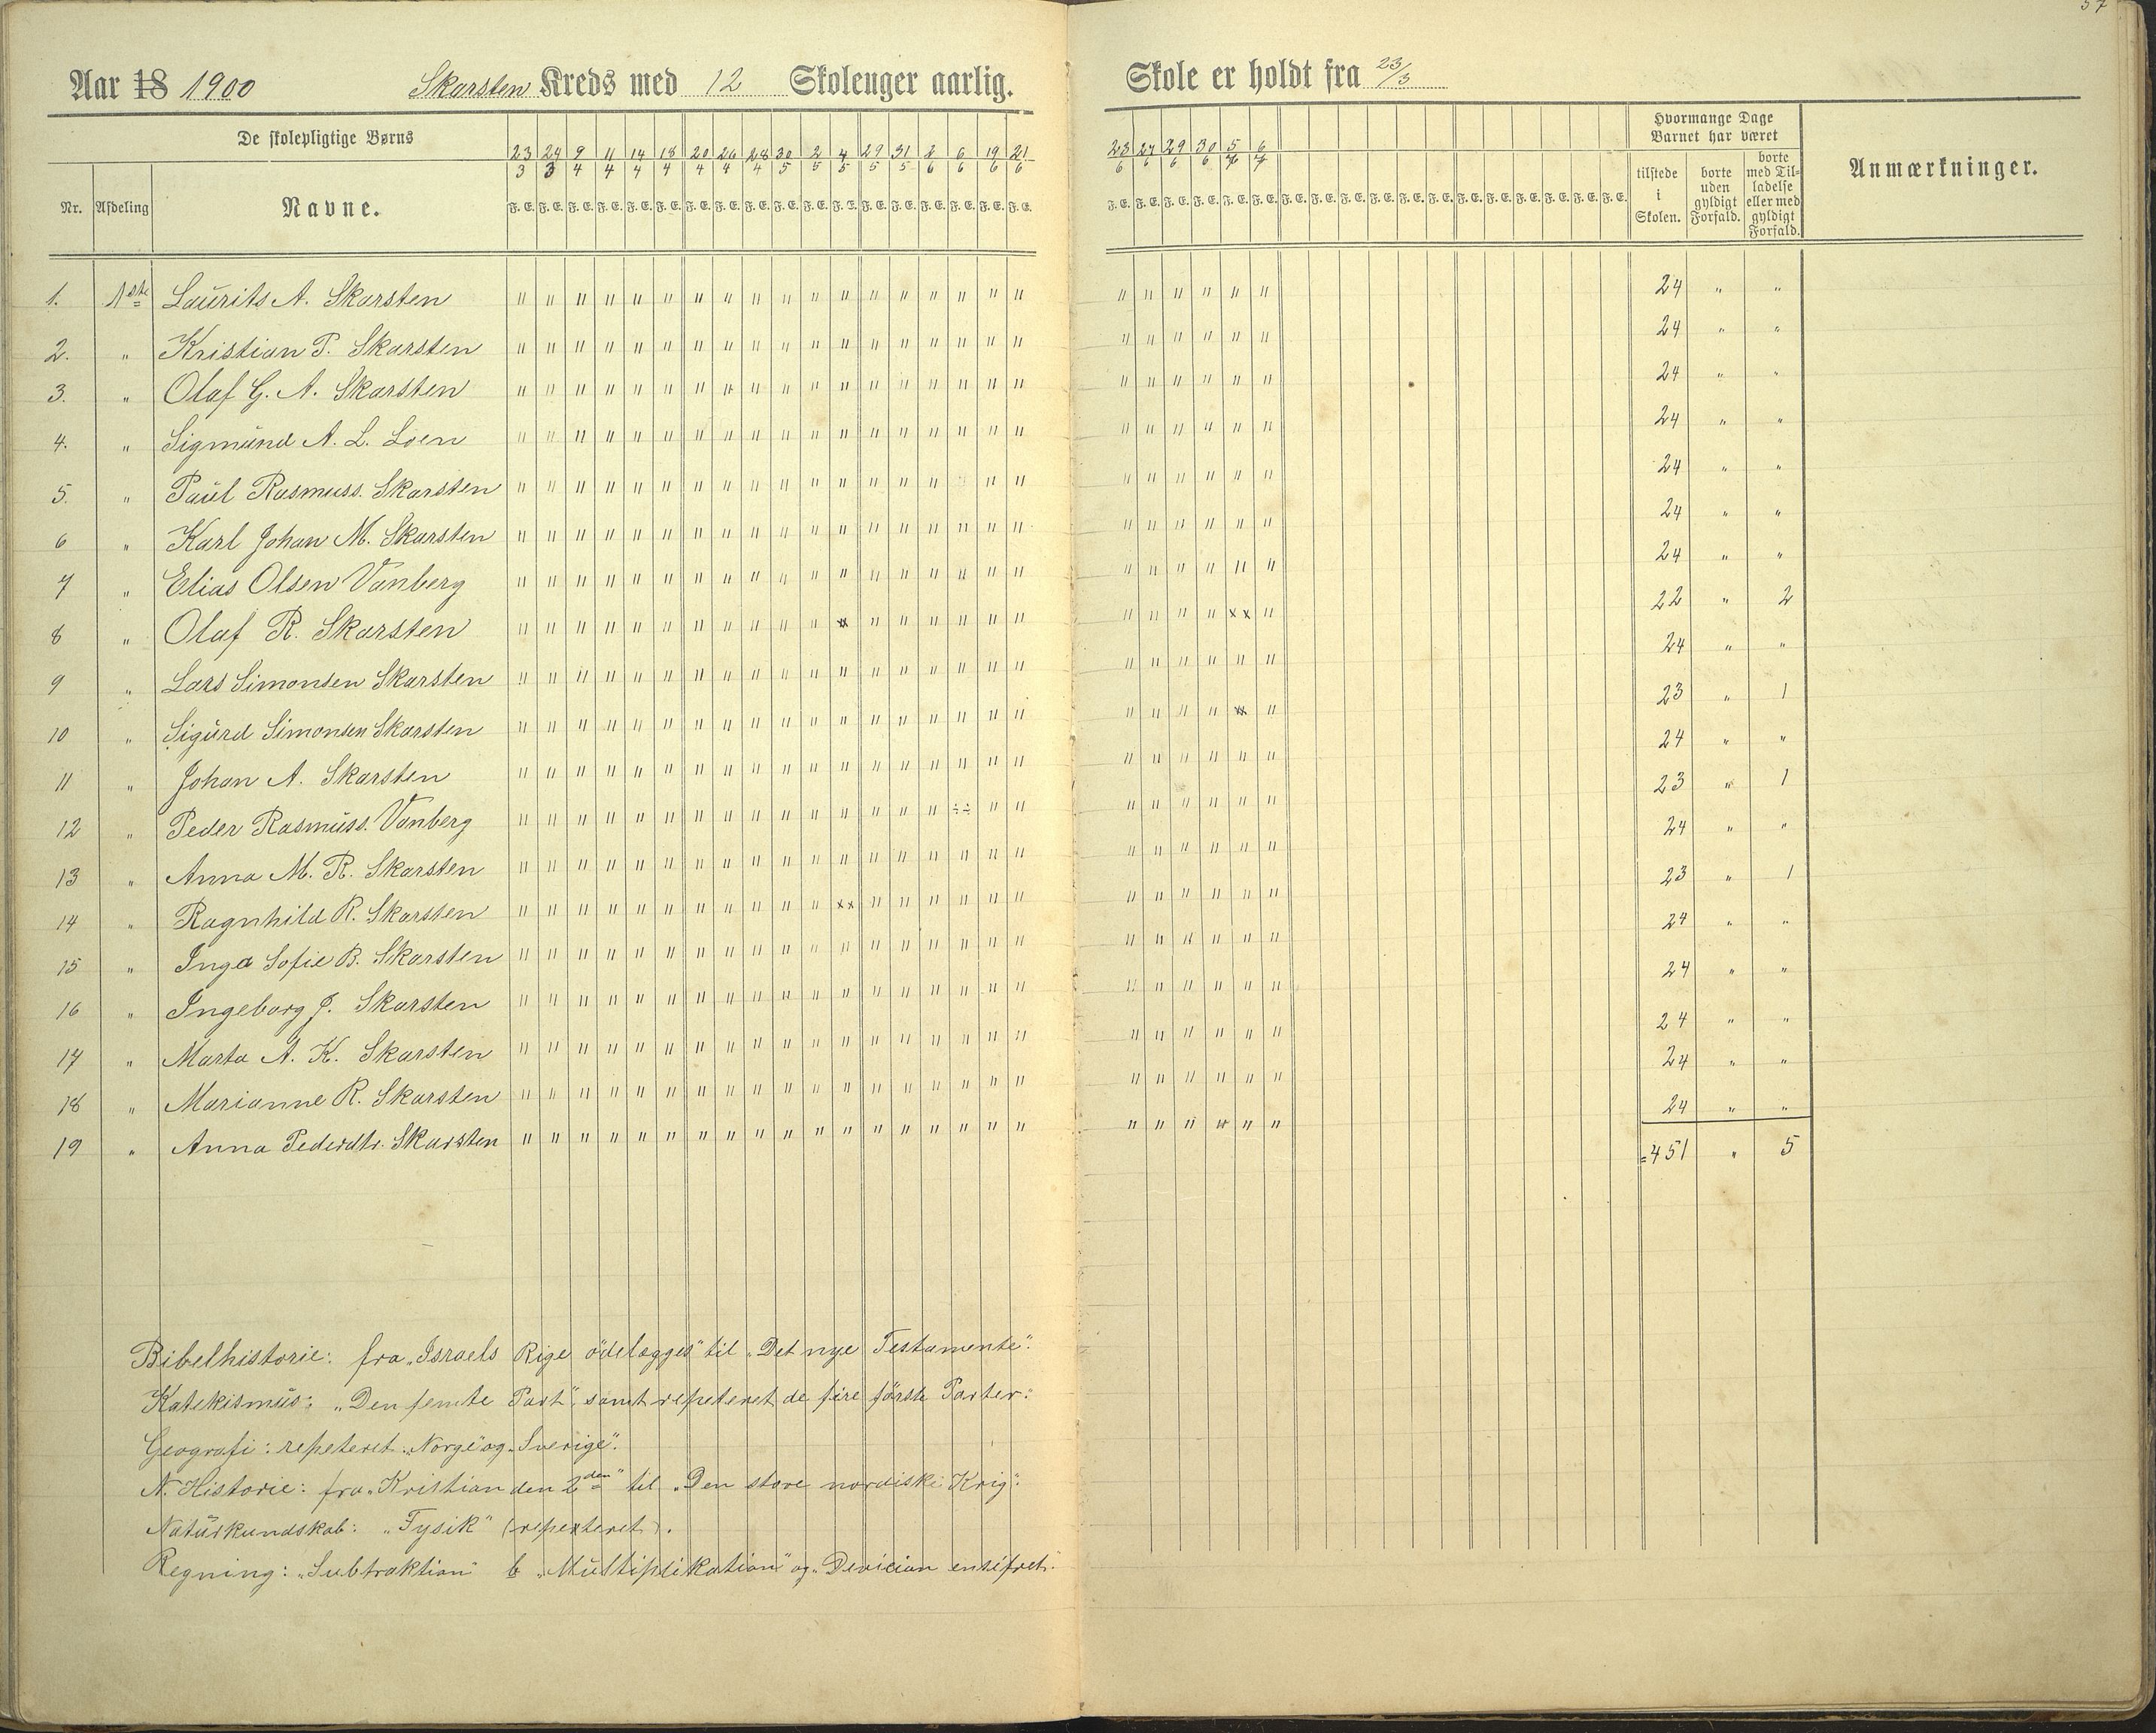 57
Aar 18 1900 Skarsten Kreds med 12 Skoleuger aarlig.
De skolepligtige Børns
Nr. Afdeling Navne.
23/3 24/3 9/4 11/4 14/4 18/4 20/4 26/4 28/4 30/5 2/5 4/5 29/5 31/5 2/6 6/6 19/6 21/6
F. E. F. E. F. E. F. E. F. E. F. E. F. E. F. E. F. E. F. E. F. E. F. E. F. E. F. E. F. E. F. E. F. E. F. E.
1. 1ste Laurits A. Skarsten
2. " Kristian P. Skarsten
3. " Olaf G. A. Skarsten
4. " Sigmund A. L. Loen
5. " Paul Rasmuss. Skarsten
6 " Karl Johan M. Skarsten
7 " Elias Olsen Vanberg
8 " Olaf R. Skarsten
9 " Lars Simonsen Skarsten
10 " Sigurd Simonsen Skarsten
11 " Johan A. Skarsten
12 " Peder Rasmuss. Vanberg
13 " Anna M. R. Skarsten
14 " Ragnhild R. Skarsten
15 " Inga Sofie B. Skarsten
16 " Ingeborg J. Skarsten
17 " Marta A. K. Skarsten
18 " Marianne R. Skarsten
19 " Anna Pedersdtr. Skarsten
Bibelhistorie: fra „Israels Rige ödelægges" til „Det nye Testamente".
Katekismus: „Den femte Part", samt repeteret de fire förste Parter.
Geografi: repeteret „Norge" og „Sverige".
N. Historie: fra „Kristian den 2den" til „Den store nordiske Krig".
Naturkundskab: „Fysik" (repeteret).
Regning: „Subtraktion" b „Multiplikation" og „Devision ensifret".
Skole er holdt fra 23/3
23/6 27/6 29/6 30/6 5/7 6/7
F. E. F. E. F. E. F. E. F. E. F. E. F. E. F. E. F. E. F. E. F. E. F. E. F. E. F. E. F. E. F. E. F. E. F. E.
Hvormange Dage Barnet har været
tilstede i Skolen.
borte uden gyldigt Forfald.
borte med Tilladelse eller med gyldigt Forfald.
Anmærkninger.
24 " "
24 " "
24 " "
24 " "
24 " "
24 " "
24 " "
22 " 2
24 " "
23 " 1
24 " "
23 " 1
24 " "
23 " 1
24 " "
24 " "
24 " "
24 " "
24 " "
=451 " 5